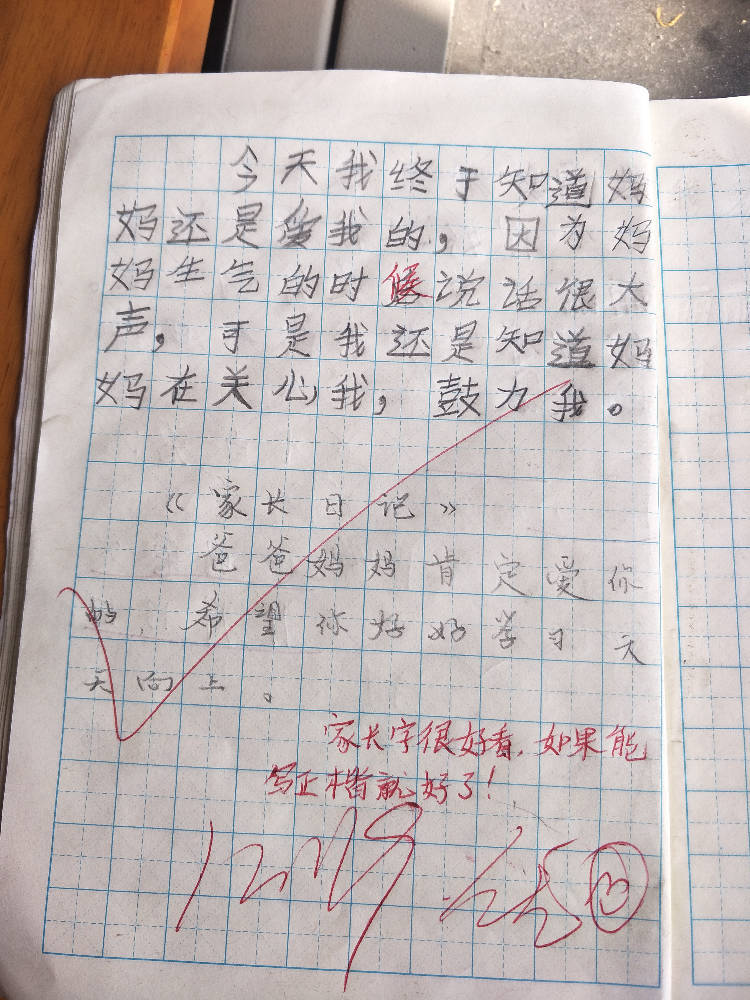 今天我终于知道妈
妈还是爱我的，因为妈
妈生气的时候说话很大
声，于是我还是知道妈
妈在关心我，鼓力我。
《家长日记》
爸爸妈妈肯定爱你
的，希望你好好学习天
天向上。
家长字很好看，如果能
写正楷就好了！